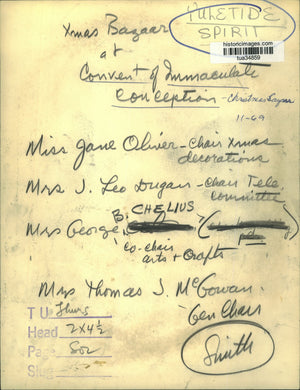 YULETIDE
SPIRIT
historicimages.com
tua34859
Xmas Bazaar
at
Convent of Immaculate
Conception - Christmas Bazaar
11-69
Miss Jane Oliver - Chair Xmas
decorations
Mrs J. Leo Dugan - Chair Tele.
Committee
B. CHELIUS
Mrs George
Co-chair
arts + crafts
Mrs Thomas J. McGowan
Gen Chair
T U Thurs
Head 2x4½
Page Soc
Slug
Smith